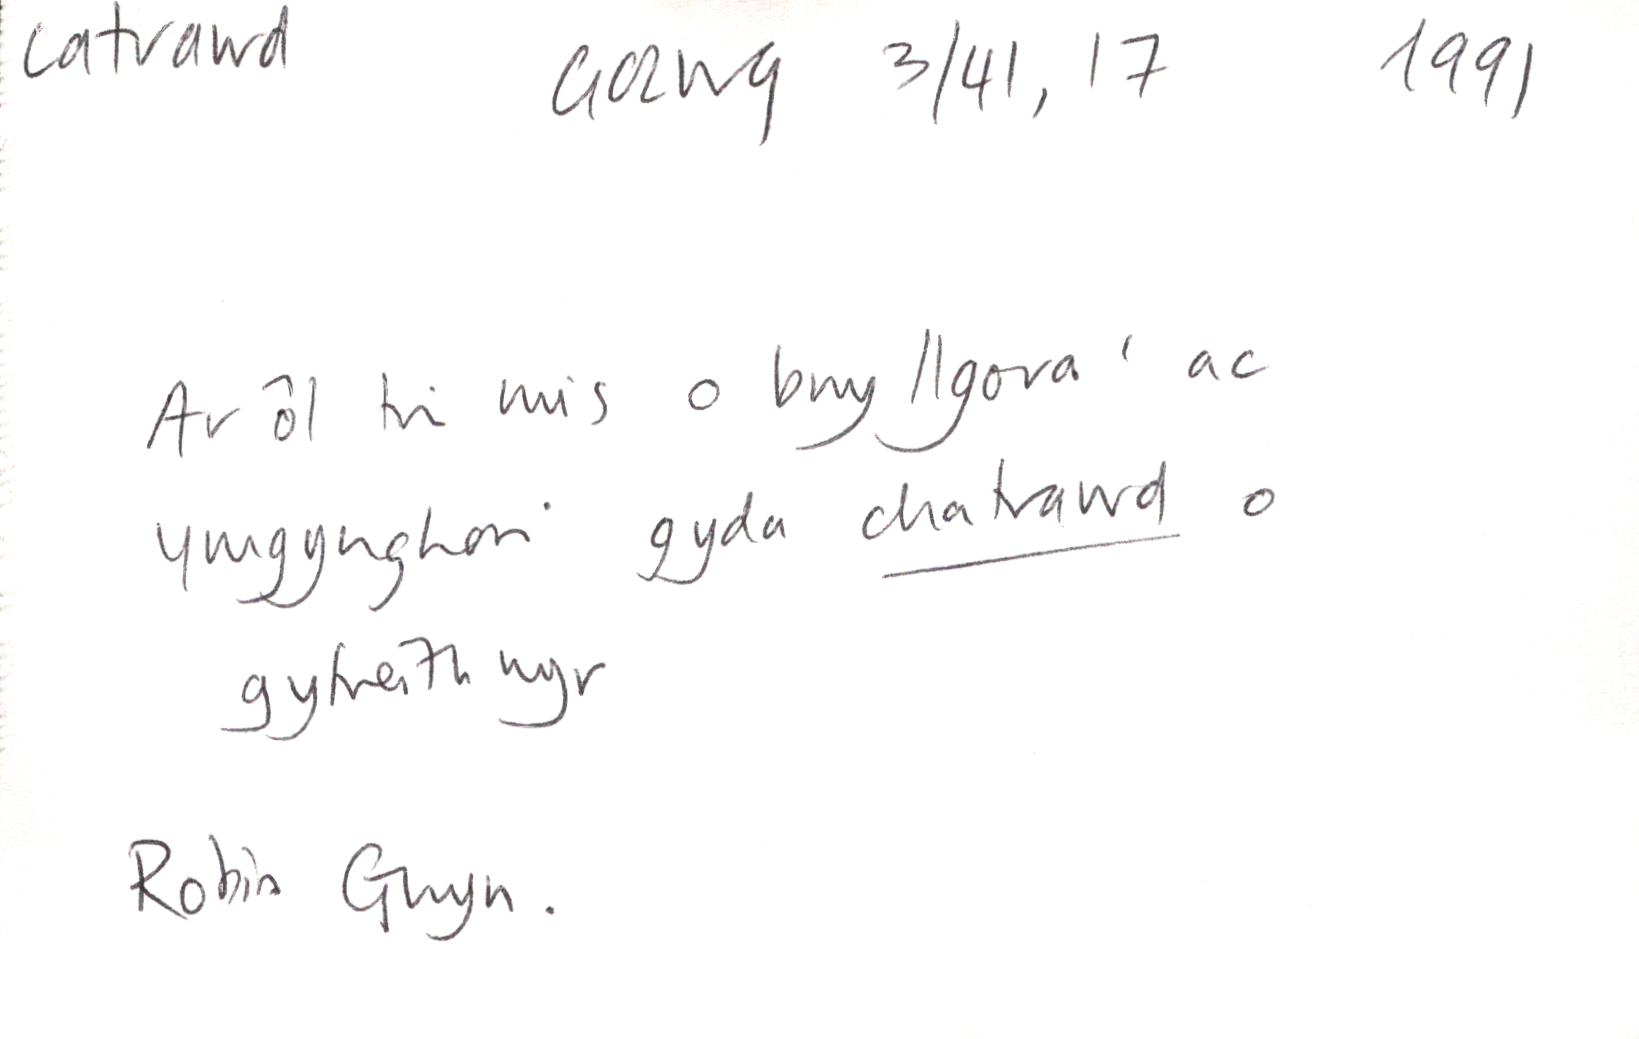 catrawd Golwg 3/41, 17 1991
Ar ôl tri mis o bwyllgora' ac
ymgynghori gyda chatrawd o
gyfreithwyr
Robin Gwyn.